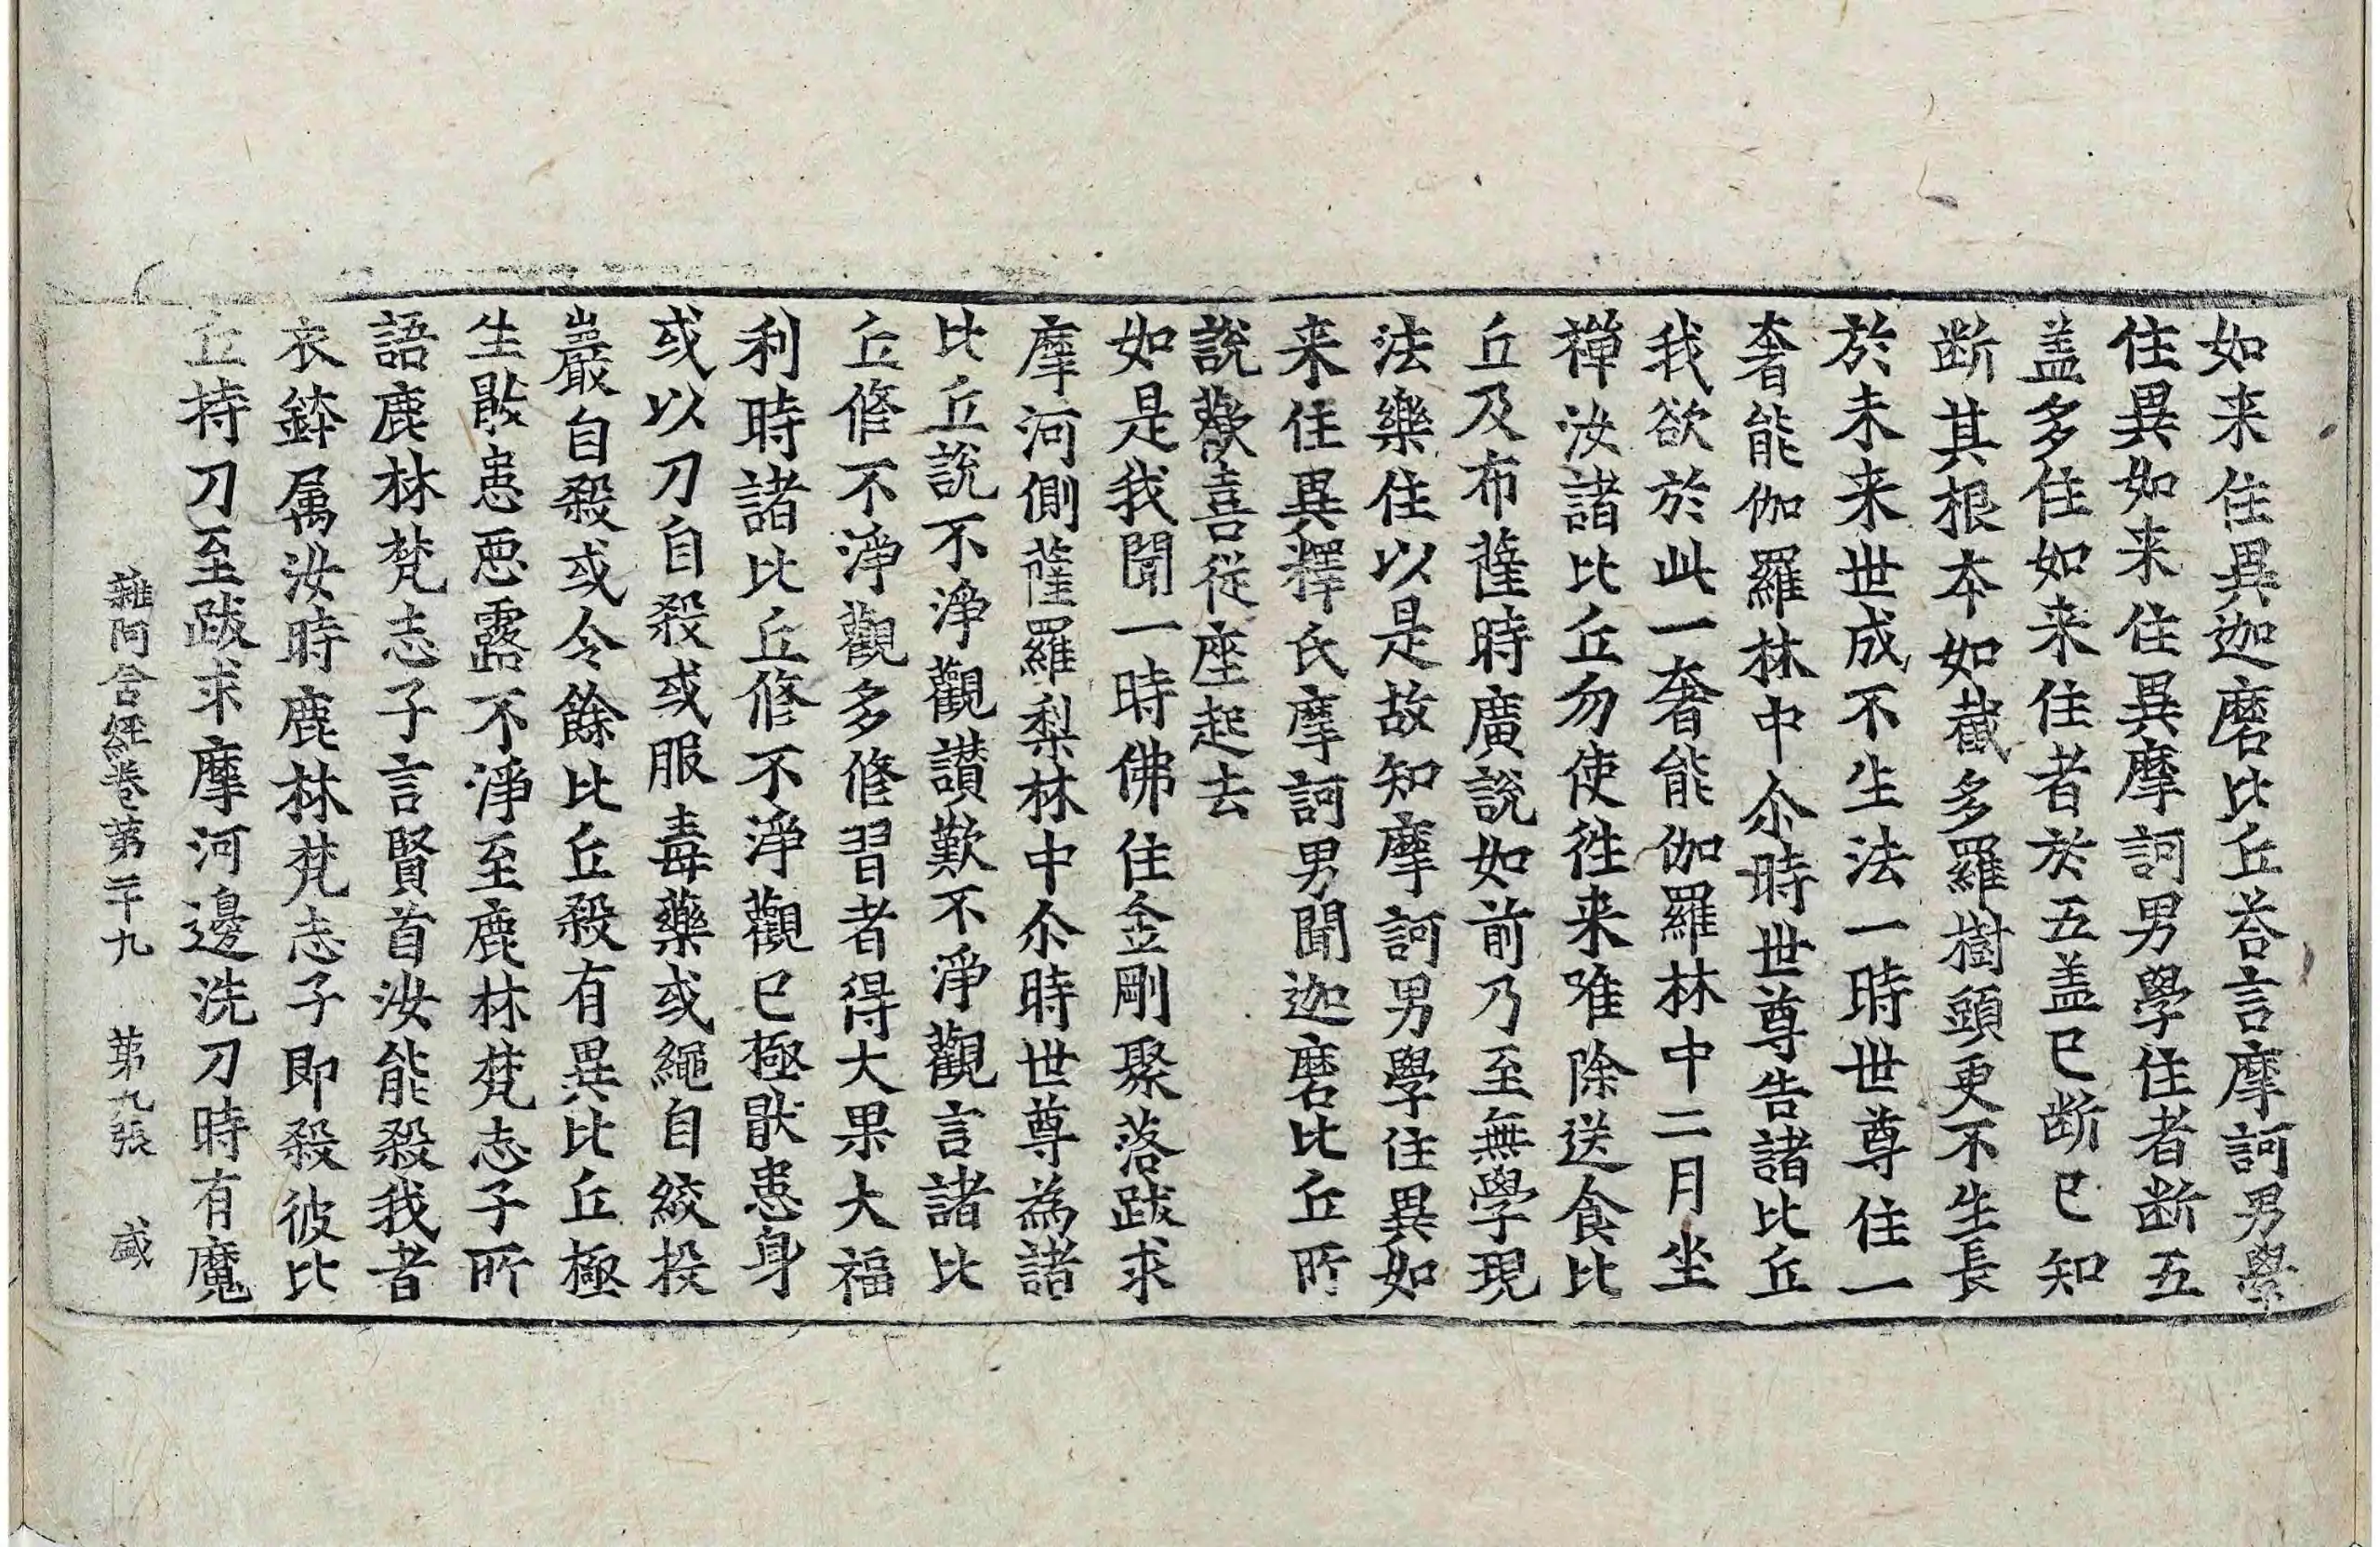 如来住異迦磨比丘荅言摩訶男學
住異如来住異摩訶男學住者断五
盖多住如来住者於五盖已断已知
断其根本如截多羅樹頭更不生長
於未来世成不生法一時世尊住一
奢能伽羅林中尒時世尊告諸比丘
我欲於此一奢能伽羅林中二月坐
禅汝諸比丘勿使徃来唯除送食比
丘及布薩時廣說如前乃至無學現
法樂住以是故知摩訶男學住異如
来住異釋氏摩訶男聞迦磨比丘所
說歡喜従座起去
如是我聞一時佛住金剛聚落跋求
摩河側薩羅梨林中尒時世尊為諸
比丘說不淨觀讃歎不淨觀言諸比
丘修不淨觀多修習者得大果大福
利時諸比丘修不淨觀已極猒患身
或以刀自殺或服毒藥或繩自絞投
巖自殺或令餘比丘殺有異比丘極
生猒患惡露不淨至鹿林梵志子所
語鹿林梵志子言賢首汝能殺我者
衣鉢属汝時鹿林梵志子即殺彼比
丘持刀至跋求摩河邊洗刀時有魔
雜阿含經卷第三十九 第九張 盛